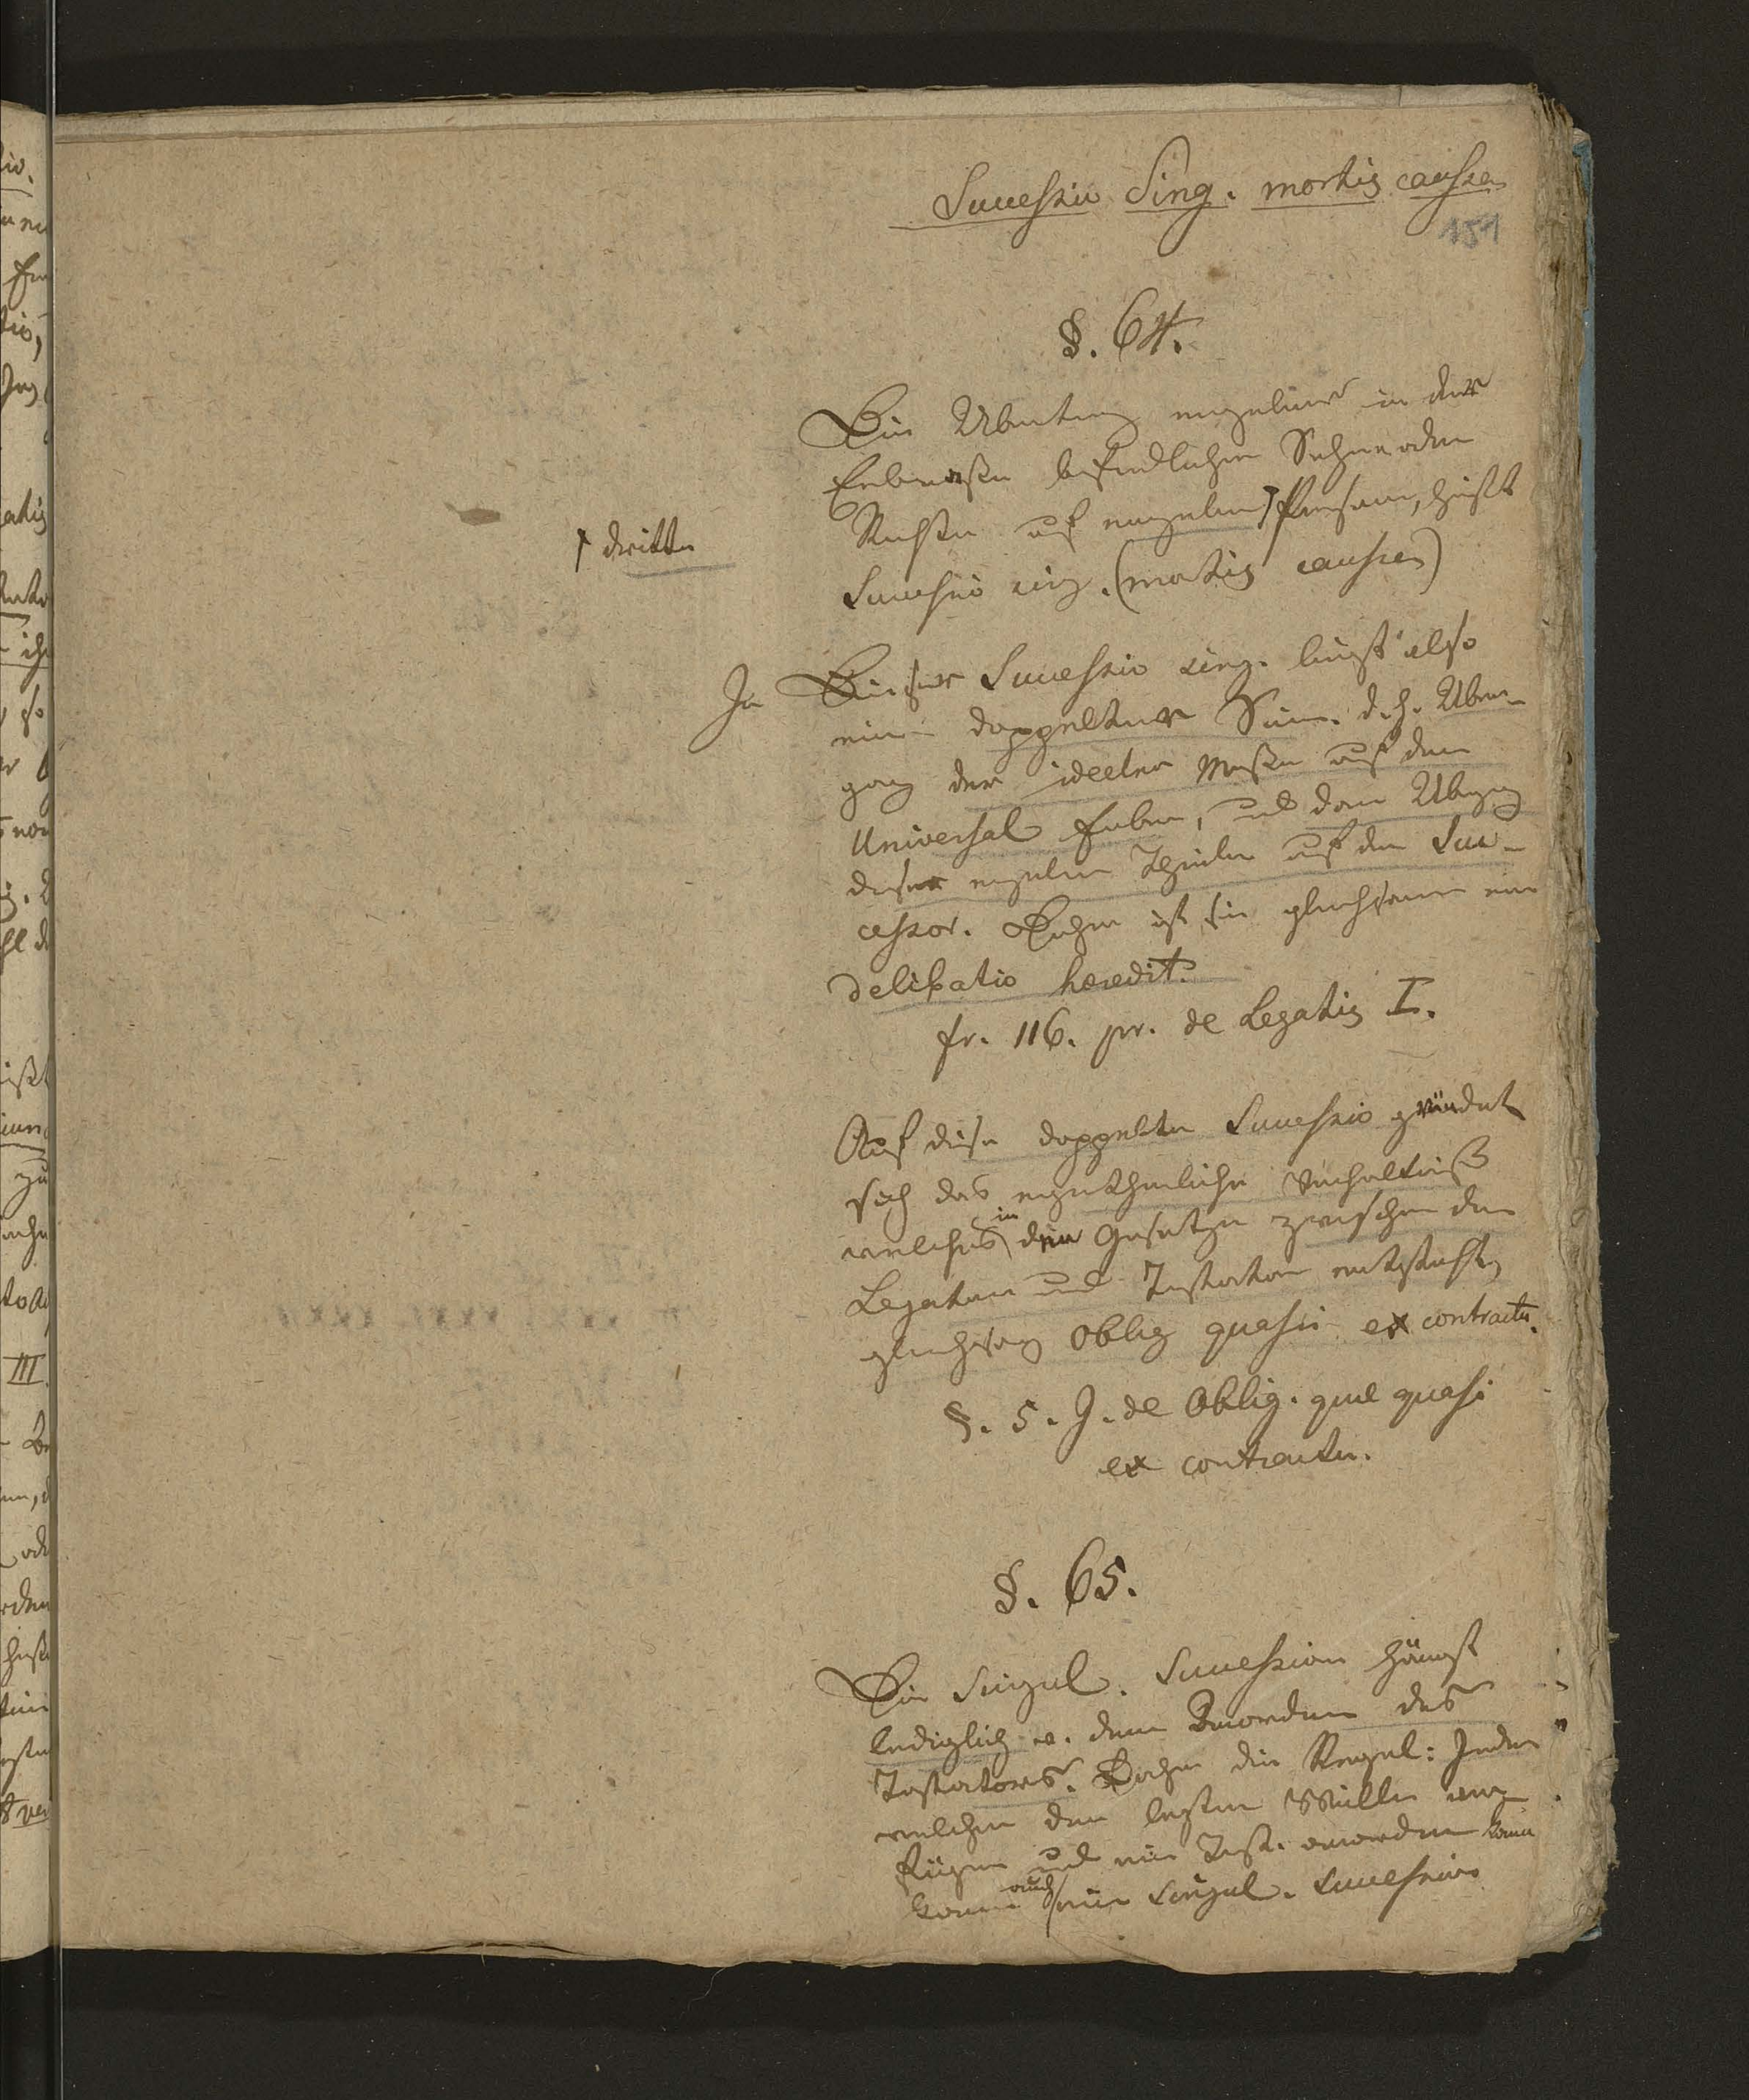 Successio Sing. mortis caussa
151
§. 64.
Die Ubertrag einzelner in der
Erbmasse befindlichen Sachen oder
Rechte auf einzelne ⌈ Personen, heißt
⌈ dritte
Successio sing. (mortis caussa)
In Dieser Successio sing. liegt also
eine doppelter Sinn. d. h. Uber-
gang der ideelen Masse auf den
Universal Erben, und dann Ubergang
dieser einzelnen Theile auf den Suc-
cessor. Daher ist sie gleichsam eine
delibatio heredit.
fr. 116. pr. de Legatis I.
Auf diese doppelte Successio gründet
sich das eigenthümliche Verhältniß
welches in den Gesetzen zwischen den
Legatar und Testator entsteht,
gleichsam Oblig quasi ex contractu.
§. 5. J. de Oblig. quae quasi
ex contractu.
§. 65.
Die Singul. Succession hängt
lediglich v. dem Anordnen des
Testators. Daher die Regel: Jeder
welcher den letzten Willen ver-
fügen und ein Test. anordnen kann
kann auch eine Singul. Successio